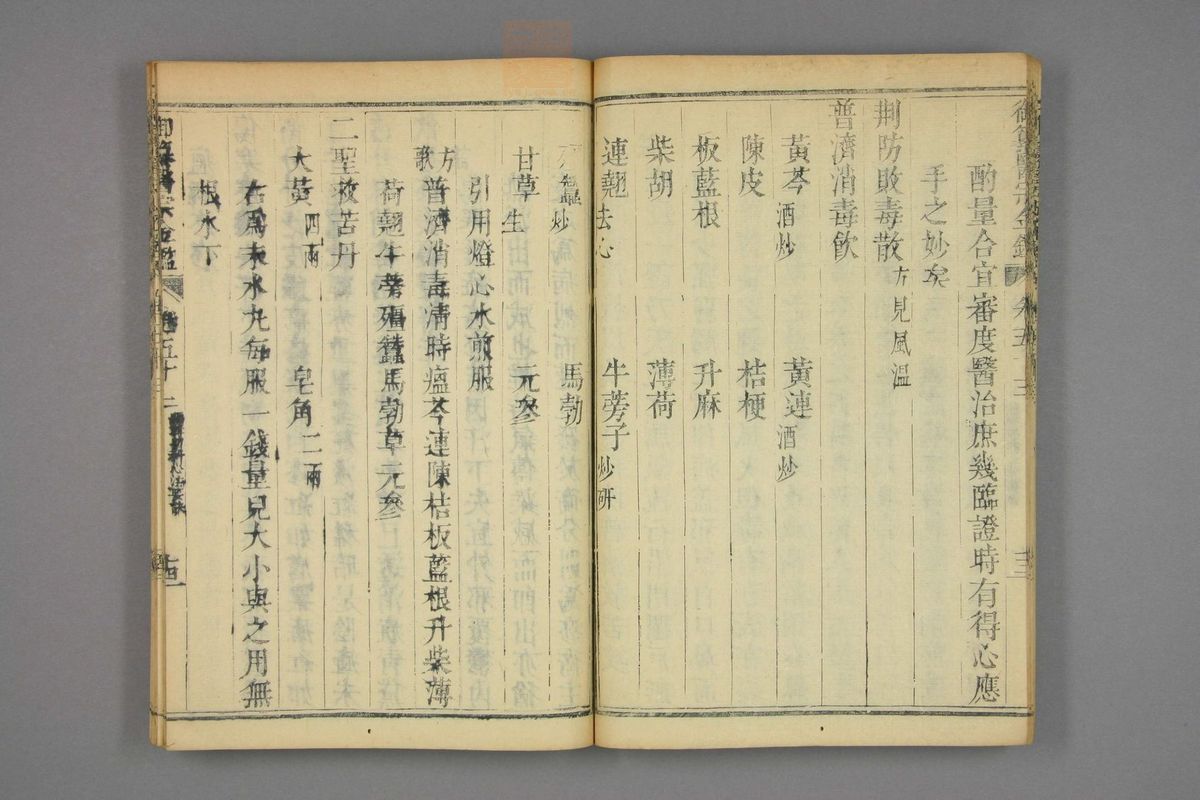 酌量合宜審度醫治庶幾臨證時有得心應
手之妙矣
荆防敗毒散 方見風溫
普濟消毒飲
黃芩 酒炒 黃連 酒炒
陳皮 桔梗
板藍根 升麻
柴胡 薄荷
連翹 去心 牛蒡子 炒研
蠶 炒 馬勃
甘草 生 元參
引用燈心水煎服
方歌 普濟消毒清時瘟芩連陳桔板藍根升柴薄
荷翹牛蒡殭蠶馬勃草元參
二聖救苦丹
大黃 四兩 皂角 二兩
右爲末水丸每服一錢量兒大小與之用無
根水下